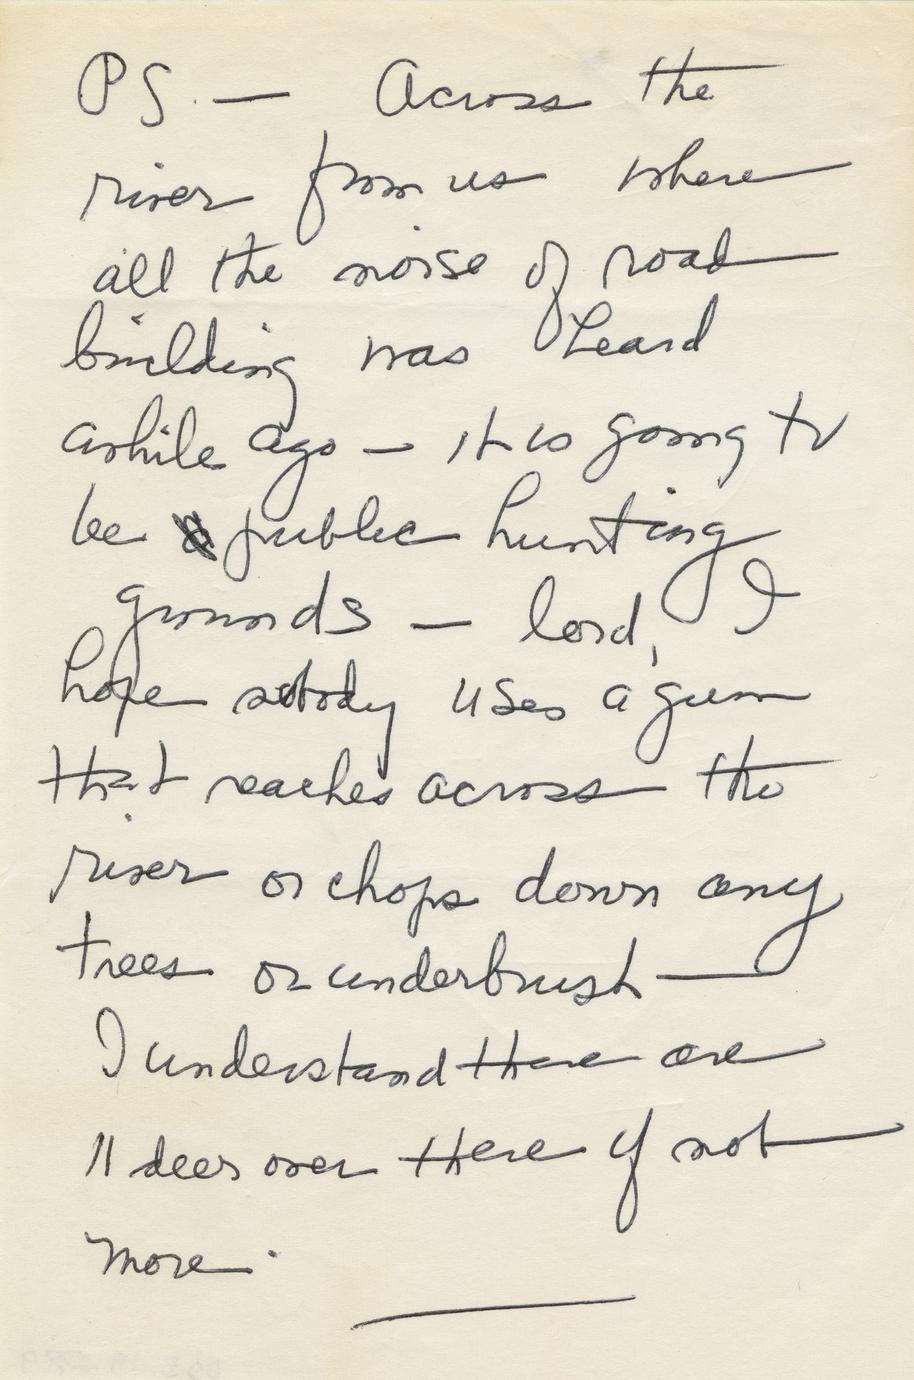 PS. — Across the
river from us where
all the noise of road
building was heard
awhile ago — it is going to
be public hunting
grounds — lord, I
hope nobody uses a gun
that reaches across the
river or chops down any
trees or underbrush —
I understand there are
11 deer over there if not
more.